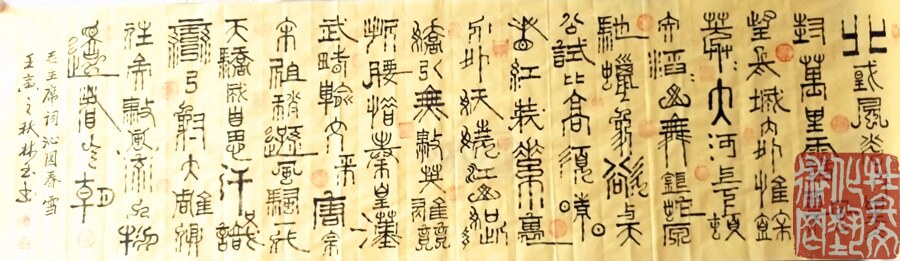 北國風光
封萬里雪
望長城內外惟餘
莽莽大河上下頓
失滔滔山舞銀蛇原
馳蠟象欲与天
公試比高須晴
看紅裝素裹
分外妖嬈江山如此多
嬌引無數英雄競
折腰惜秦皇漢
武略輸文采唐宗
宋祖稍遜風騷一代
天驕成吉思汗只識
彎弓射大雕俱
往矣數風流人物
還看今朝
毛主席詞沁园春雪
之秋